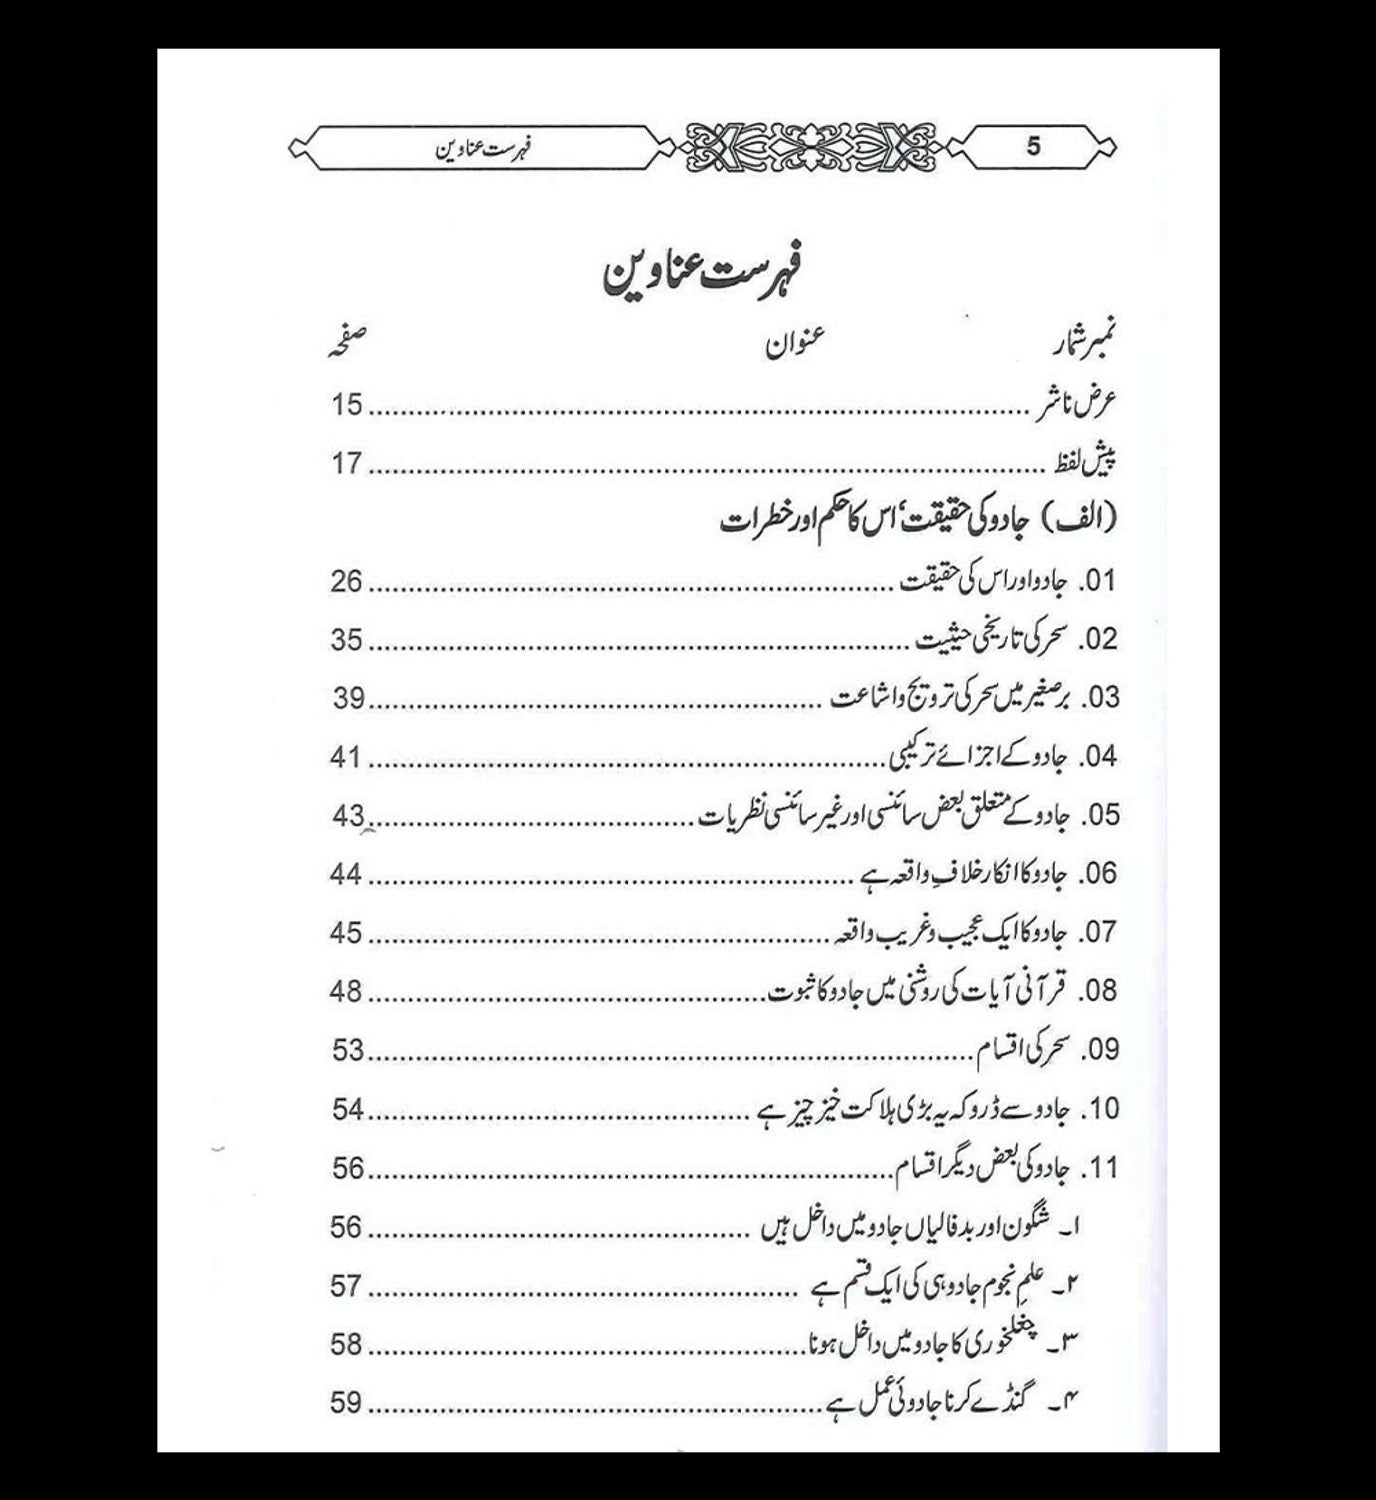 5 فہرست عناوین
فہرست عناوین
نمبر شمار عنوان صفحہ
عرض ناشر 15
پیش لفظ 17
(الف) جادو کی حقیقت، اس کا حکم اور خطرات
01. جادو اور اس کی حقیقت 26
02. سحر کی تاریخی حیثیت 35
03. برصغیر میں سحر کی ترویج و اشاعت 39
04. جادو کے اجزائے ترکیبی 41
05. جادو کے متعلق بعض سائنسی اور غیر سائنسی نظریات 43
06. جادو کا انکار خلافِ واقعہ ہے 44
07. جادو کا ایک عجیب و غریب واقعہ 45
08. قرآنی آیات کی روشنی میں جادو کا ثبوت 48
09. سحر کی اقسام 53
10. جادو سے ڈرو کہ یہ بڑی ہلاکت خیز چیز ہے 54
11. جادو کی بعض دیگر اقسام 56
۱۔ شگون اور بدفالیاں جادو میں داخل ہیں 56
۲۔ علمِ نجوم جادو ہی کی ایک قسم ہے 57
۳۔ چغلخوری کا جادو میں داخل ہونا 58
۴۔ گنڈے کرنا جادوئی عمل ہے 59